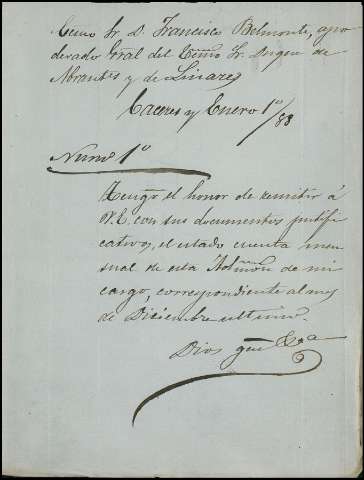 Exmo Sr. D. Francisco Belmonte, apo
derado Gral del Exmo Sr. Duque de
Abrantes y de Linares
Caceres y Enero 1º/88
Numº 1º
Tengo el honor de remitir á
V.E. con sus documentos justifi
cativos, el estado cuenta men
sual de esta Admon de mi
cargo, correspondiente al mes
de Diciembre ultimo.
Dios gue